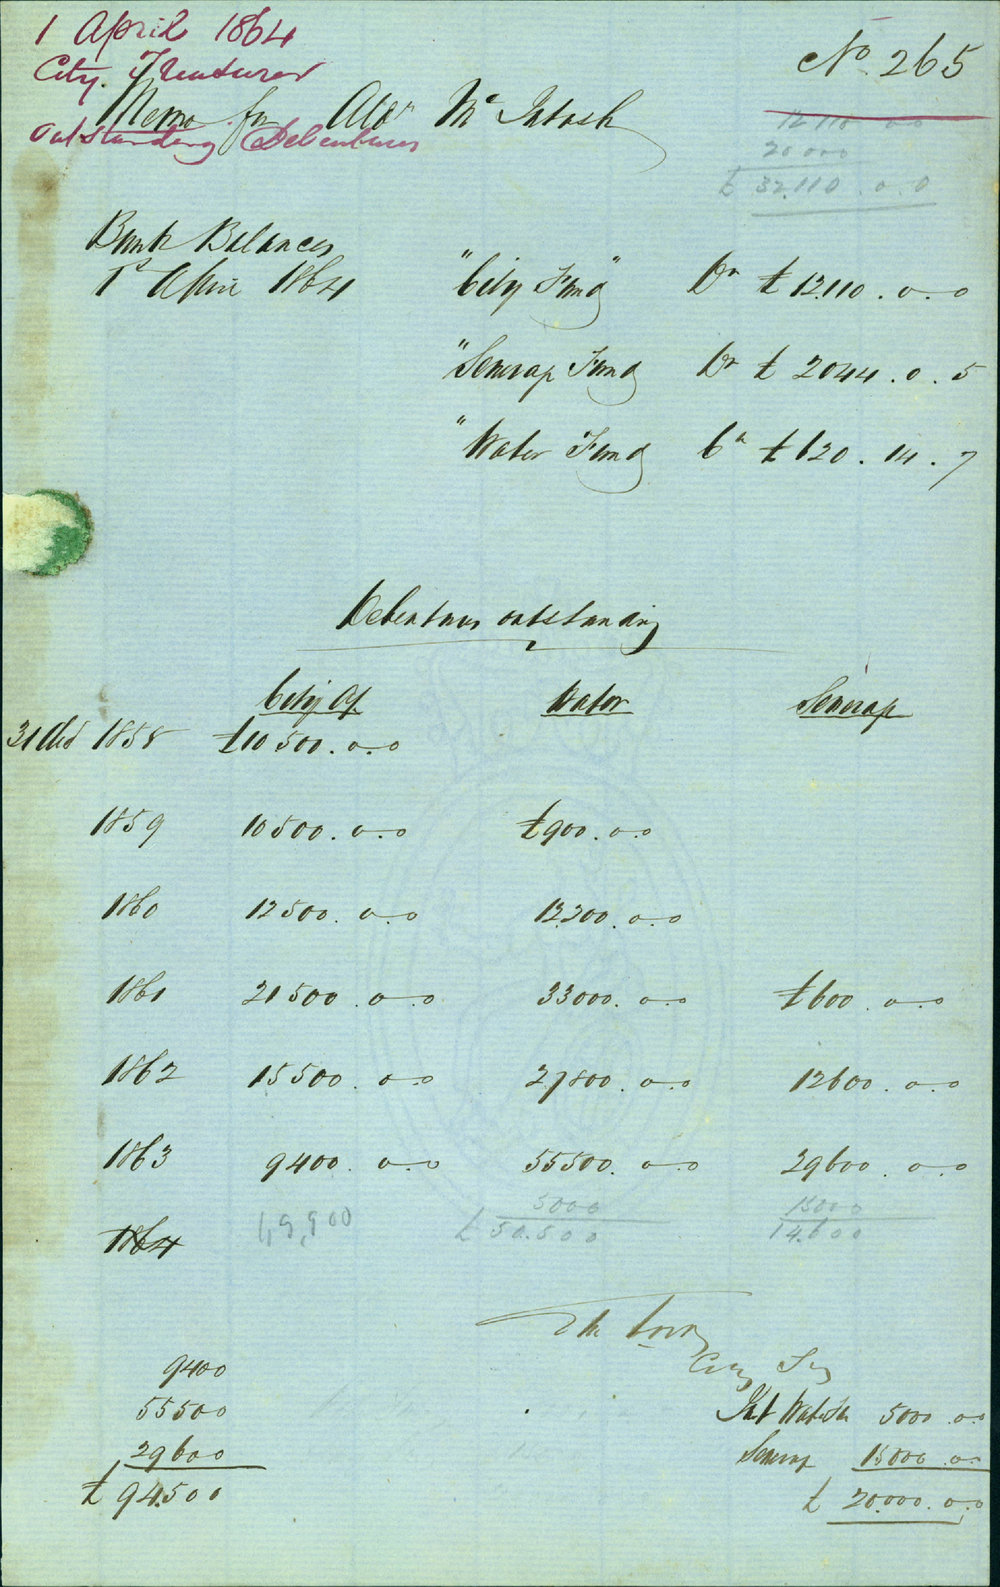 1 April 1864
City Treasurer
Outstanding Debentures
No 265
Memo for Ald n Mc Intosh
12 110 0 0
20 000
£ 32.110 . 0 . 0
Bank Balances
1st April 1864 "City Fund" Dr £ 12.110 . 0 . 0
"Sewerage Fund Dr £ 2044 . 0 . 5
"Water Fund Cr £ 620 . 14 . 7
Debentures outstanding
City Of Water Sewerage
31 Dec 1858 £10 500 . 0 . 0
1859 10500 . 0 . 0 £900 . 0 . 0
1860 12500 . 0 . 0 12.300 . 0 . 0
1861 21500 . 0 . 0 33000 . 0 . 0 £600 . 0 . 0
1862 15500 . 0 . 0 27800 . 0 . 0 12600 . 0 . 0
1863 9400 . 0 . 0 55500 . 0 . 0 29600 . 0 . 0
5000 15000
1864 £ 50.500 14.600
9400
55500
29600
£ 94.500
City
5000 . 0 . 0
Sewerage 15000 . 0 . 0
£ 20.000 . 0 . 0